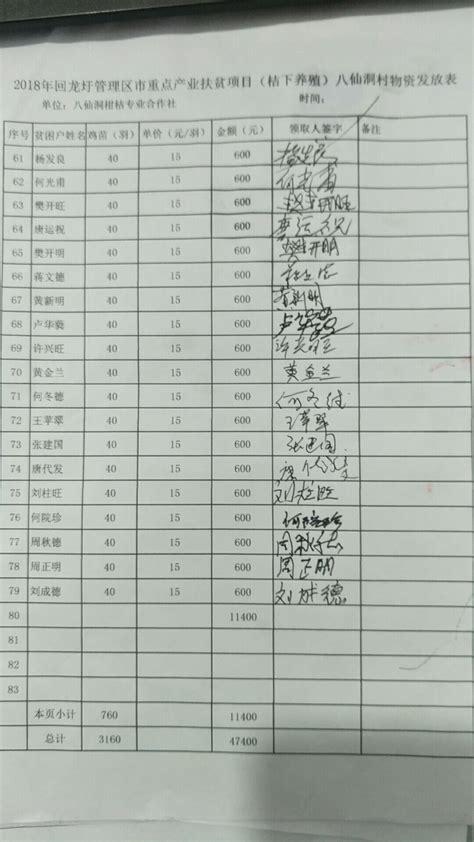 2018年回龙圩管理区市重点产业扶贫项目（桔下养殖）八仙洞村物资发放表
单位：八仙洞柑桔专业合作社 时间：
序号 贫困户姓名 鸡苗（羽） 单价（元/羽） 金额（元） 领取人签字 备注
61 杨发良 40 15 600
62 何光甫 40 15 600 何光甫
63 樊开旺 40 15 600 樊开旺
64 唐运祝 40 15 600 唐运祝
65 樊开明 40 15 600 樊开明
66 蒋文德 40 15 600
67 黄新明 40 15 600 黄新明
68 卢华爕 40 15 600
69 许兴旺 40 15 600
70 黄金兰 40 15 600 黄金兰
71 何冬德 40 15 600 何冬德
72 王苹翠 40 15 600 王苹翠
73 张建国 40 15 600 张建国
74 唐代发 40 15 600 唐代发
75 刘柱旺 40 15 600 刘柱旺
76 何院珍 40 15 600 何院珍
77 周秋德 40 15 600 周秋德
78 周正明 40 15 600 周正明
79 刘成德 40 15 600 刘成德
80 11400
81
82
83
本页小计 760 11400
总计 3160 47400